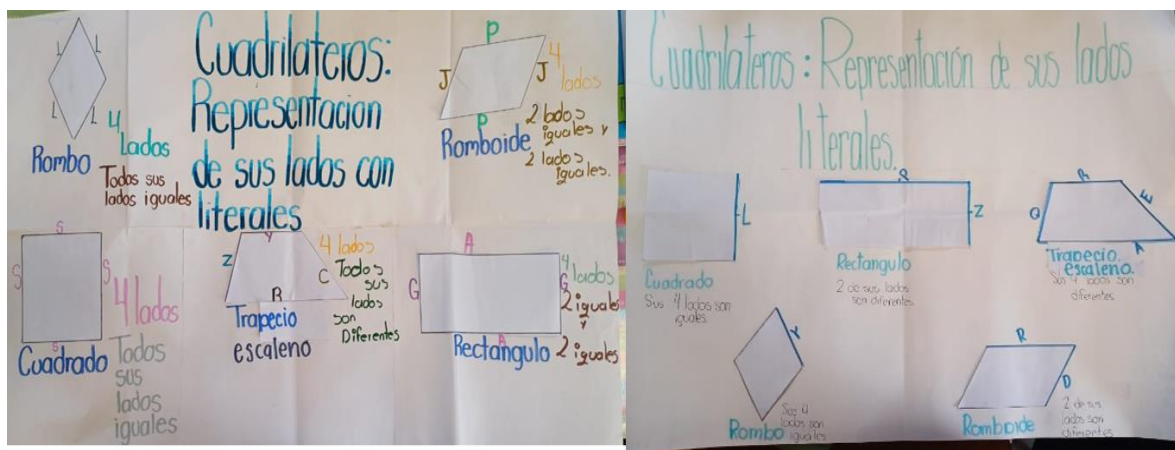 Cuadrilateros:
Representacion
de sus lados con
literales
L
L
L
L
Rombo
4
lados
Todos sus
lados iguales
P
J
J
P
Romboide
4
lados
2 lados
iguales y
2 lados
iguales.
S
S
S
S
Cuadrado
4 lados
Todos
sus
lados
iguales
Y
Z
C
R
Trapecio
escaleno
4 lados
Todos
sus
lados
son
Diferentes
A
G
G
A
Rectángulo
4 lados
2 iguales
y
2 iguales
Cuadrilateros: Representación de sus lados
literales.
L
Cuadrado
Sus 4 lados son
iguales
Z
Rectangulo
2 de sus lados
son diferentes
Q
E
A
Trapecio
escaleno.
Sus 4 lados son
diferentes
Y
Rombo
Sus 4
lados son
iguales
R
D
Romboide
2 de sus
lados son
diferentes